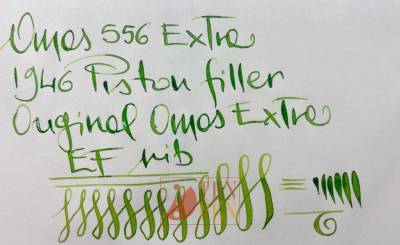 Omas 556 Extra
1946 Piston filler
Original Omas Extra
EF nib